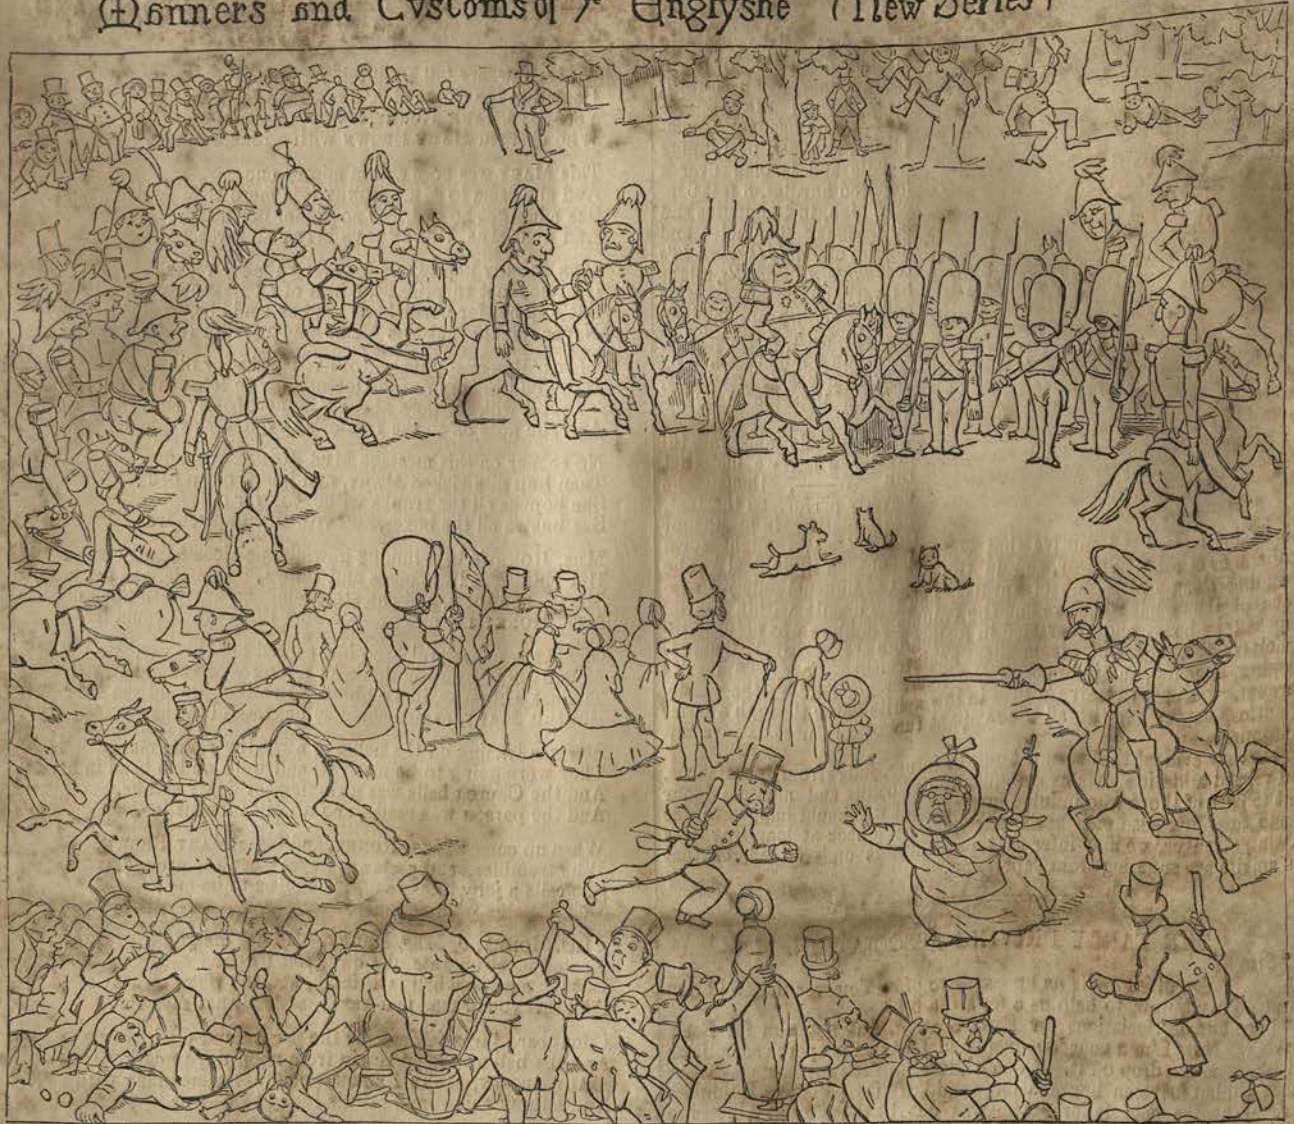 Manners and Cvstoms of yᵉ Englyshe (New Series)